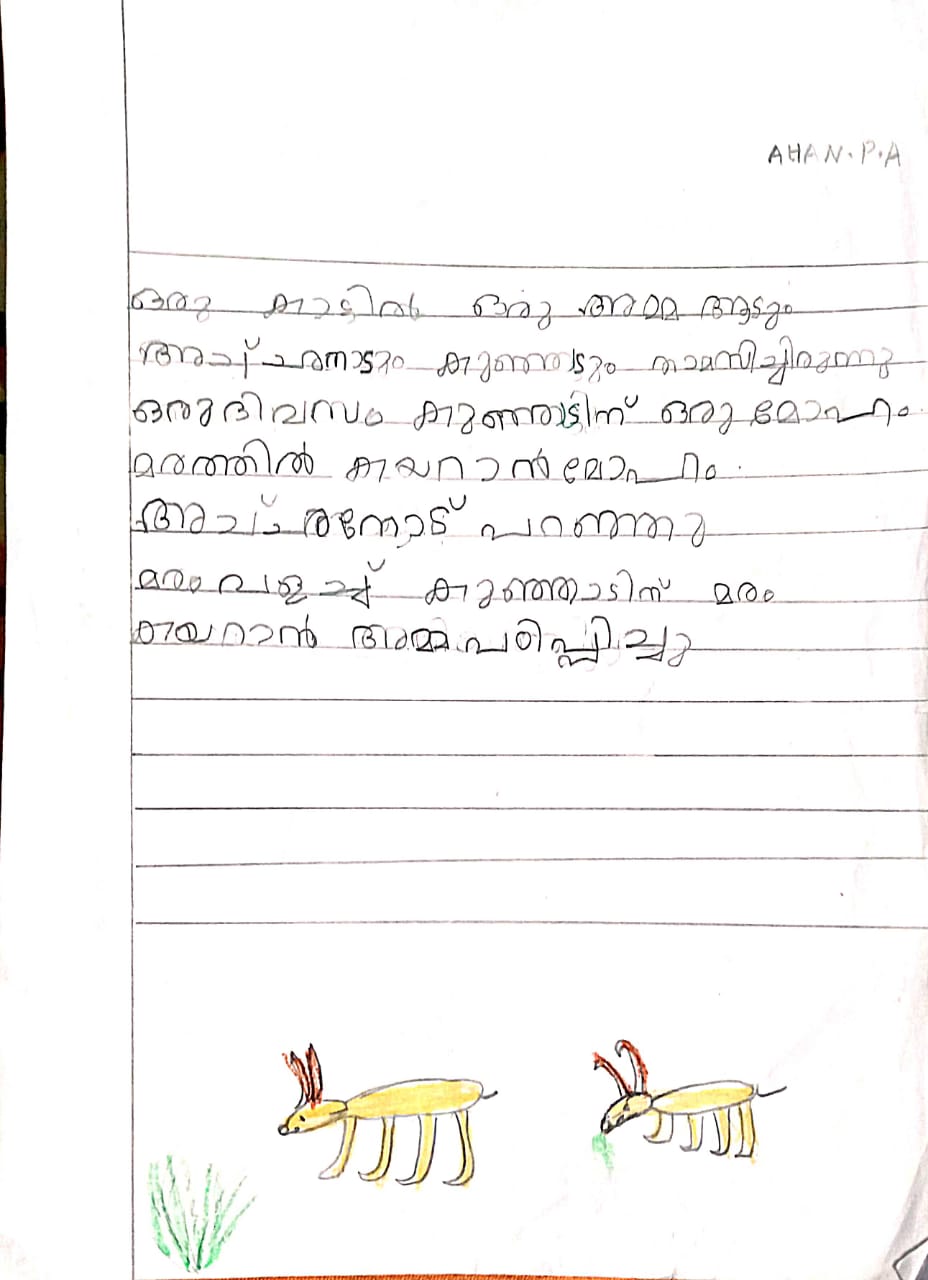 AHAN.P.A
ഒരു കാട്ടിൽ ഒരു അമ്മ ആടും
കുഞ്ഞാടും താമസിച്ചിരുന്നു
ഒരുദിവസം കുഞ്ഞാട്ടിന് ഒരു മോഹം.
മരത്തിൽ കയറാൻ മോഹം.
പറഞ്ഞു
മരം കുഞ്ഞാടിന് മരം
കയറാൻ അമ്മ പഠിപ്പിച്ചു